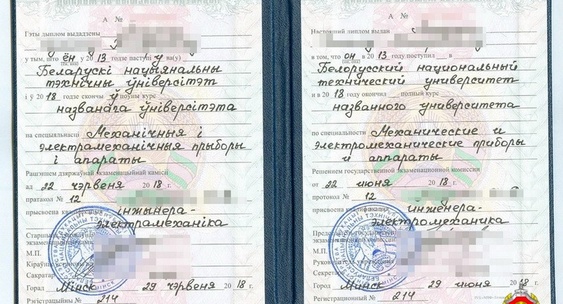 А №
Гэты дыплом выдадзены
у тым, што ён у 2013 годзе паступіў ва(у)
Беларускі нацыянальны
тэхнічны ўніверсітэт
і ў 2018 годзе скончыў поўны курс
названага ўніверсітэта
па спецыяльнасці Механічныя і
электрамеханічныя прыборы
і апараты
Рашэннем дзяржаўнай экзаменацыйнай камісіі
ад 22 чэрвеня 2018 г.
пратакол № 12
прысвоена
інжынера-
электрамеханіка
М.П.
Сакратар
г. Мінск 29 чэрвеня 2018
Рэгістрацыйны № 214
А №
Настоящий диплом выдан
в том, что он в 2013 году поступил в
Белорусский национальный
технический университет
и в 2018 году окончил полный курс
названного университета
по специальности Механические и
электромеханические приборы
и аппараты
Решением государственной экзаменационной комиссии
от 22 июня 2018 г.
протокол № 12
присвоена
инженера-
электромеханика
М.П.
Секретарь
Минск 29 июня 2018
Регистрационный № 214